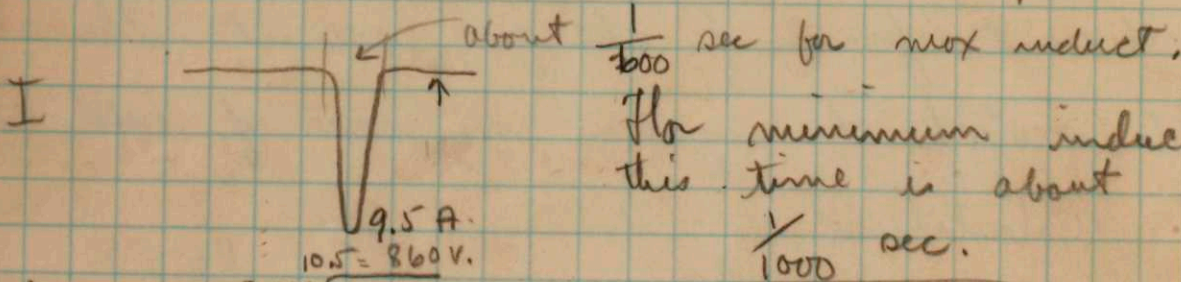 about 1/600 sec for max induct.
I
For minimum induc
this time is about
1/1000 sec.
9.5 A.
10.5 = 860 V.